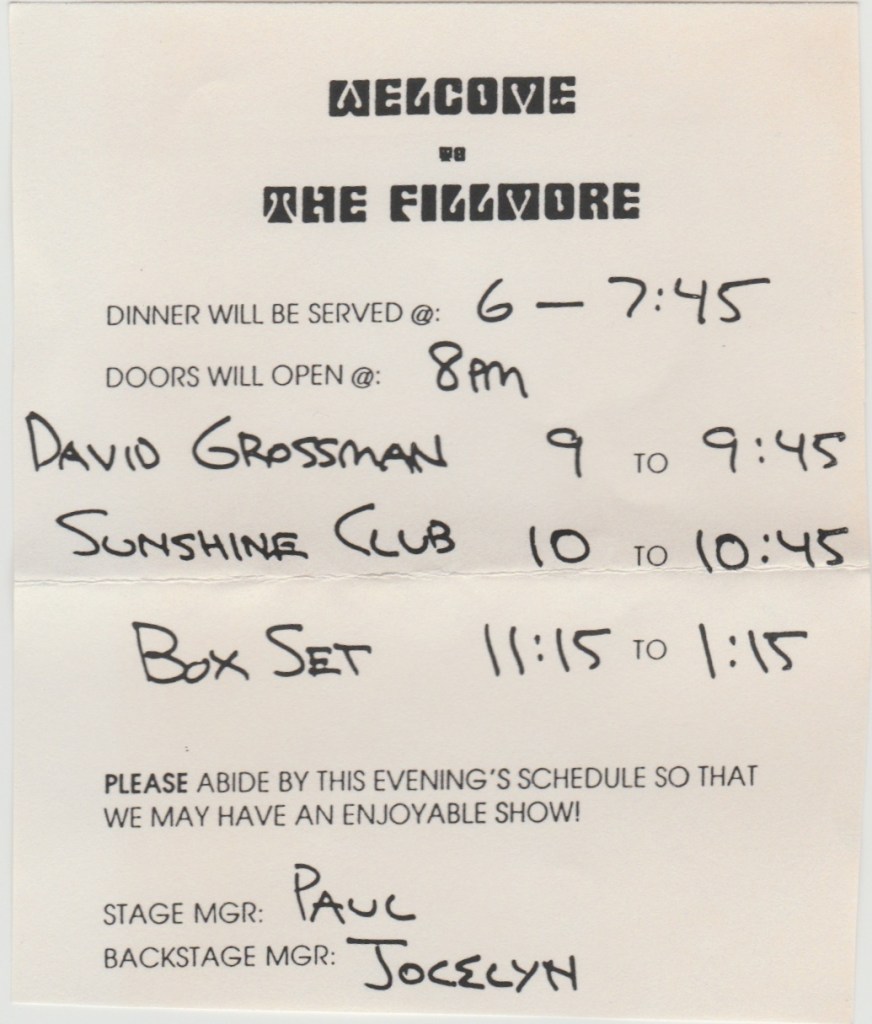 WELCOME
TO
THE FILLMORE
DINNER WILL BE SERVED @: 6 – 7:45
DOORS WILL OPEN @: 8pm
DAVID GROSSMAN 9 TO 9:45
SUNSHINE CLUB 10 TO 10:45
BOX SET 11:15 TO 1:15
PLEASE ABIDE BY THIS EVENING'S SCHEDULE SO THAT
WE MAY HAVE AN ENJOYABLE SHOW!
STAGE MGR: PAUL
BACKSTAGE MGR: JOCELYN